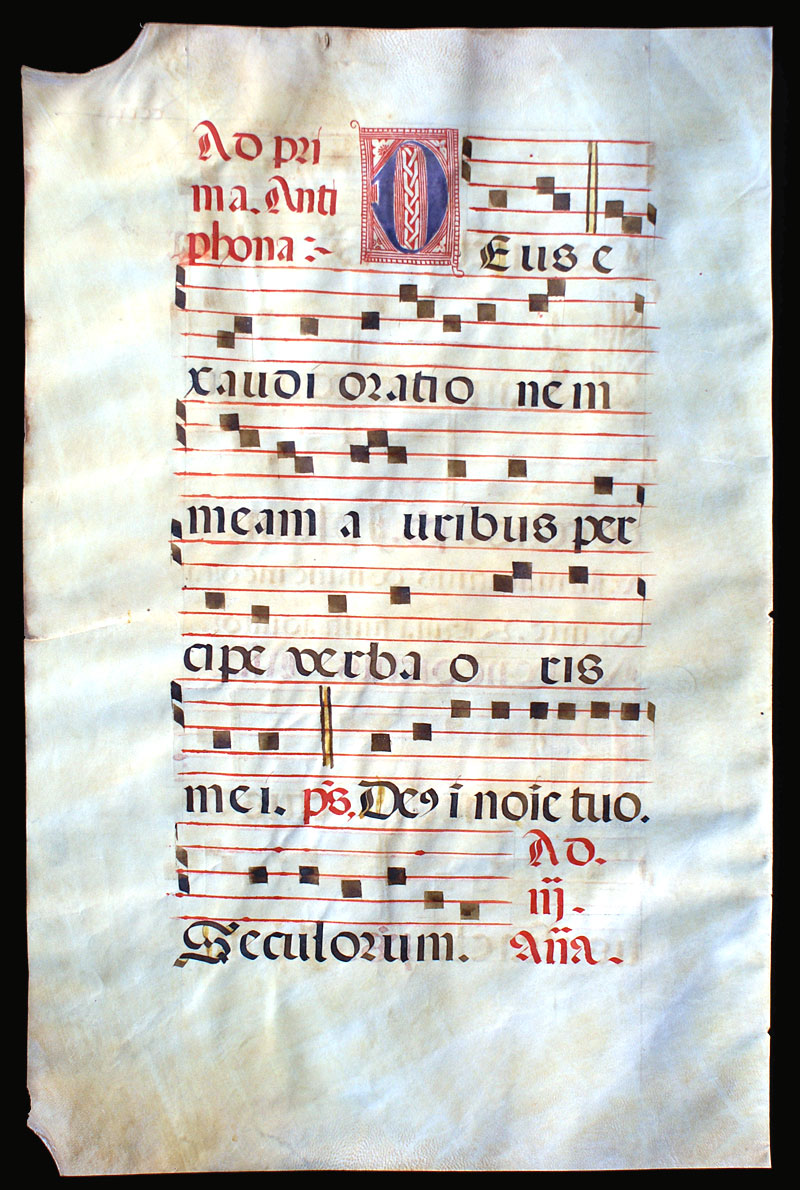 Ad pri
ma. Anti
phona:~
DEus e
xaudi oratio nem
meam a uribus per
cipe verba o ris
mei. ps. Deꝯ ī noīe tuo.
Ad.
iij.
Seculorum. Aña.